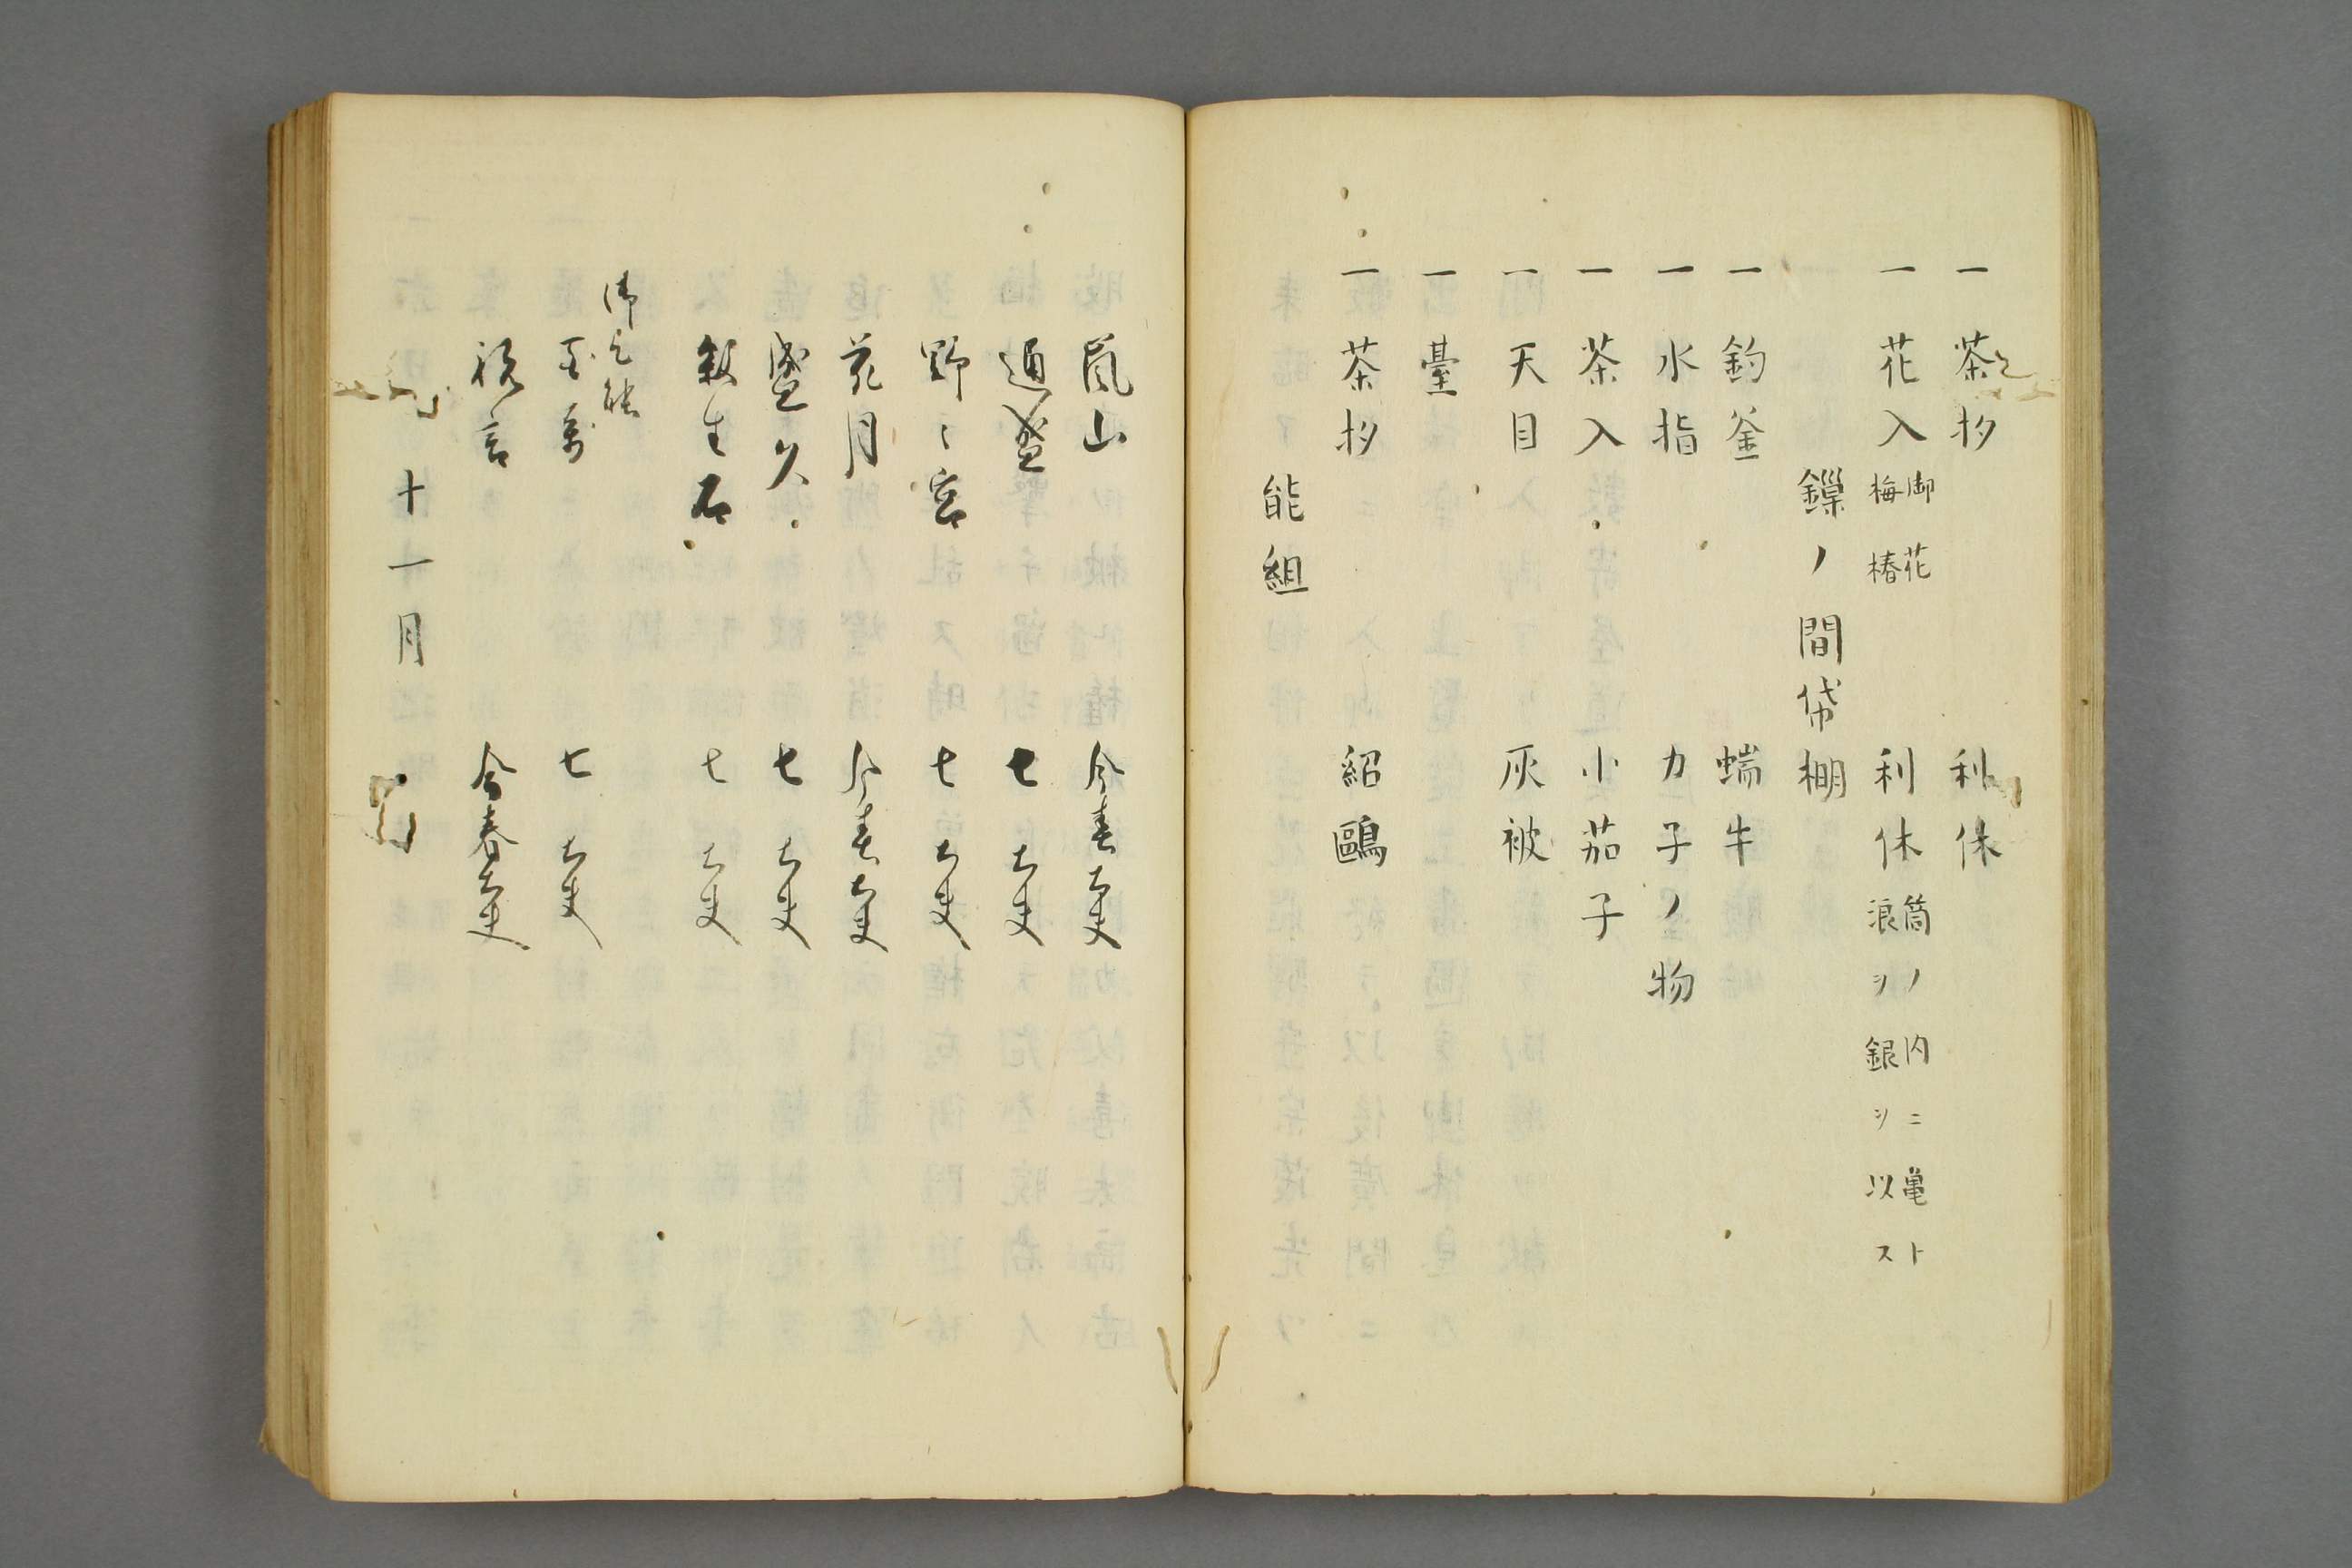 一 茶杓 利休
一 花入 御花 梅 椿 利休 筒ノ内ニ亀ト 浪ヲ銀ヲ以ス
鏁ノ間袋棚
一 釣釜 蝸牛
一 水指 カ子ノ物
一 茶入 小茄子
一 天目 灰被
一 臺
一 茶杓 紹鷗
能組
嵐山 今春大夫
通盛 七大夫
野々宮 七大夫
花月 今春大夫
盛久 七大夫
殺生石 七大夫
御乞能
七大夫
祝言 今春大夫
十一月